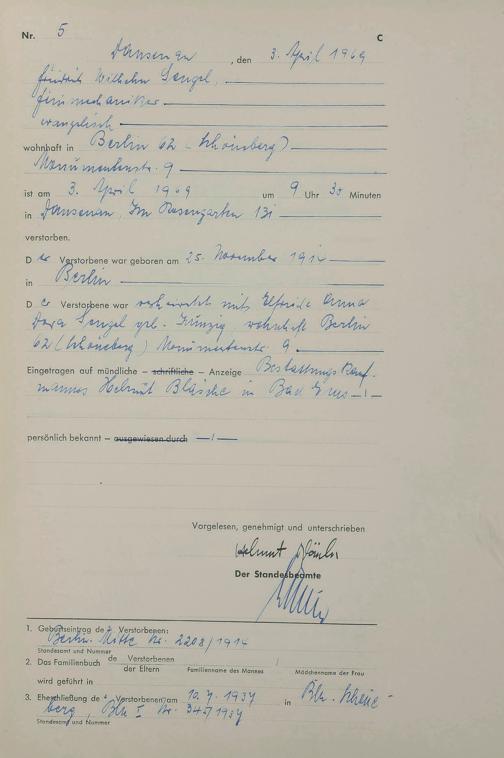 Nr. 5 C
Dausenau, den 3. April 1969
Friedrich Wilhelm Sengel,
Feinmechaniker
evangelisch
wohnhaft in Berlin 62 (Schöneberg)
Monumentenstr. 9
ist am 3. April 1969 um 9 Uhr 30 Minuten
in Dausenau, Im Rosengarten 13i
verstorben.
D er Verstorbene war geboren am 25. November 1914
in Berlin
D er Verstorbene war verheiratet mit Elfriede Anna
Dora Sengel geb. wohnhaft Berlin
62 (Schöneberg) Monumentenstr. 9
Eingetragen auf mündliche – schriftliche – Anzeige Bestattungskauf-
mannes Helmut Bläsche in Bad Ems -/-
persönlich bekannt – ausgewiesen durch -/-
Vorgelesen, genehmigt und unterschrieben
Helmut
Der Standesbeamte
1. Geburtseintrag des Verstorbenen:
Berlin-Mitte Nr. 2208/1914
Standesamt und Nummer
2. Das Familienbuch de Verstorbenen / der Eltern
Familienname des Mannes Mädchenname der Frau
wird geführt in
3. Eheschließung des Verstorbenen am 10.7.1937 in Bln.-Schöne-
berg, Bln I Nr. 345/1937
Standesamt und Nummer